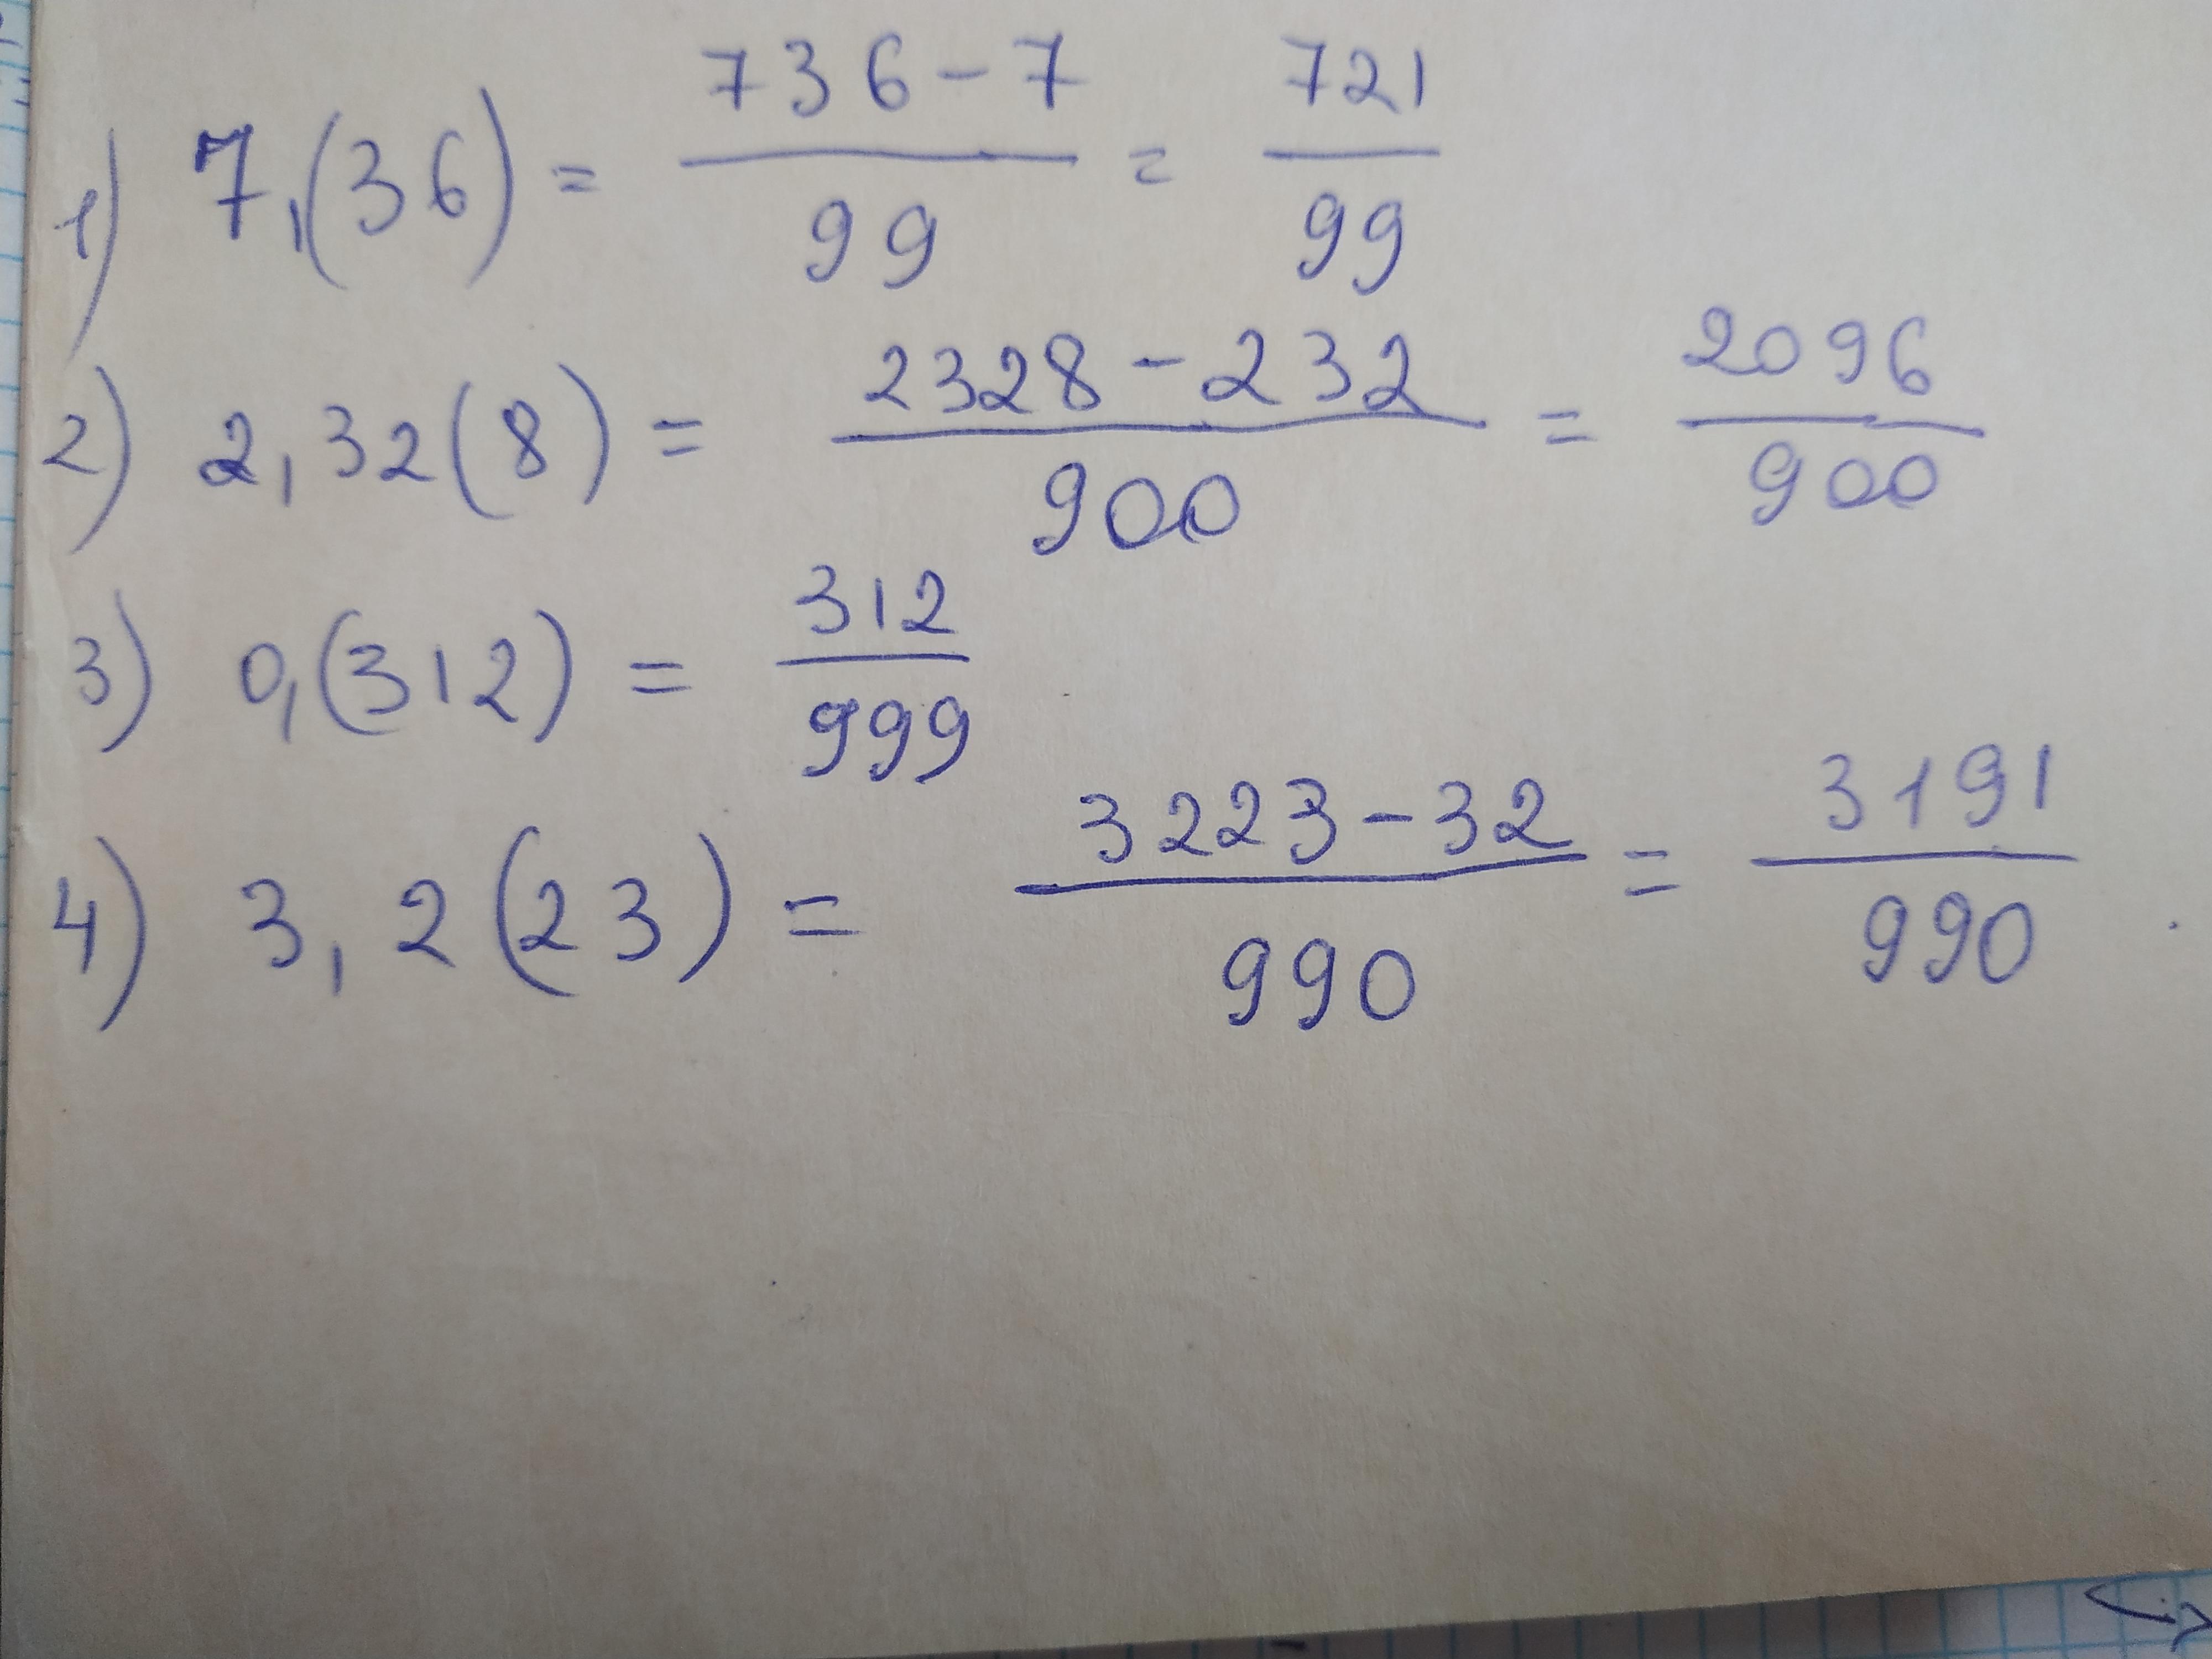 1) 7,(36) = (736-7)/99 = 721/99
2) 2,32(8) = (2328-232)/900 = 2096/900
3) 0,(312) = 312/999
4) 3,2(23) = (3223-32)/990 = 3191/990